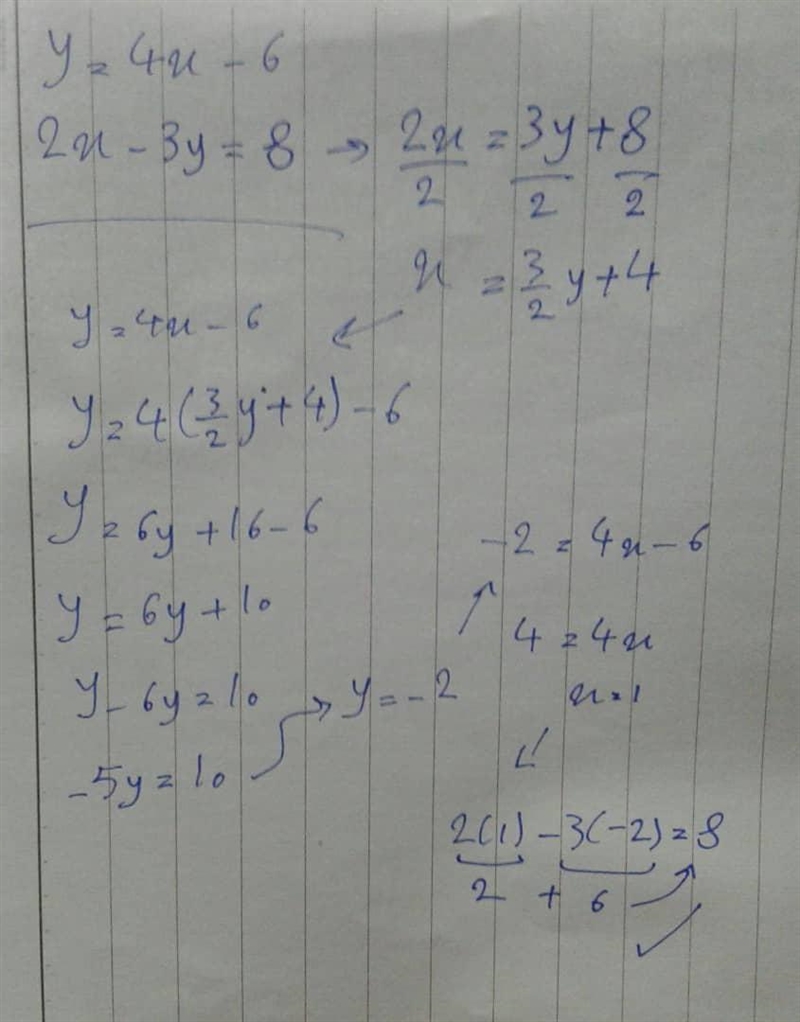 y = 4x - 6
2x - 3y = 8 → 2x/2 = 3y/2 + 8/2
x = 3/2 y + 4
y = 4x - 6 ←
y = 4(3/2 y + 4) - 6
y = 6y + 16 - 6
y = 6y + 10
y - 6y = 10
-5y = 10 → y = -2
-2 = 4x - 6
4 = 4x
x = 1
2(1) - 3(-2) = 8
2 + 6 ✓